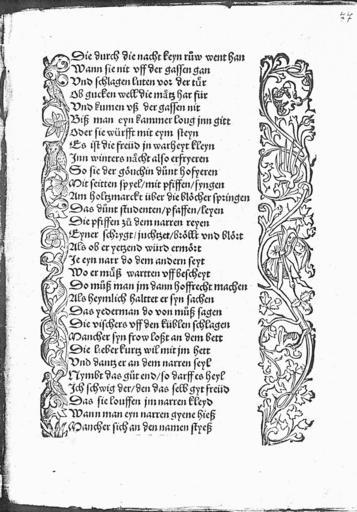 Die durch die nacht keyn růw went han
Wann sie nit vff der gassen gan
Vnd schlagen luten vor der tür
Ob gucken well die mätz har für
Vnd kumen vß der gassen nit
Biß man eyn kammer loug jnn gitt
Oder sie würfft mit eym steyn
Es ist die freüd jn warheyt kleyn
Jnn winters nächt also erfryeren
So sie der göuchin dünt hofyeren
Mit seitten spyel / mit pfiffen / syngen
Am holtzmarckt über die blöcher springen
Das dünt studenten / pfaffen / leyen
Die pfiffen zů dem narren reyen
Eyner schrygt / juchtzet / bröllt vnd blört
Als ob er yetzend würd ermört
Je eyn narr do dem andern seyt
Wo er můß wartten vff bescheyt
Do můß man jm dann hoffrecht machen
Als heymlich halttet er syn sachen
Das yederman do von můß sagen
Die vischers vff den küblen schlagen
Mancher syn frow loßt an dem bett
Die lieber kurtz wil mit jm hett
Vnd dantzet an dem narren seyl
Nymbt das gůt end / so darff es heyl
Jch schwig der / den das selb gyt freüd
Das sie louffen jm narren kleyd
Wann man eyn narren gyene hieß
Mancher sich an den namen styeß